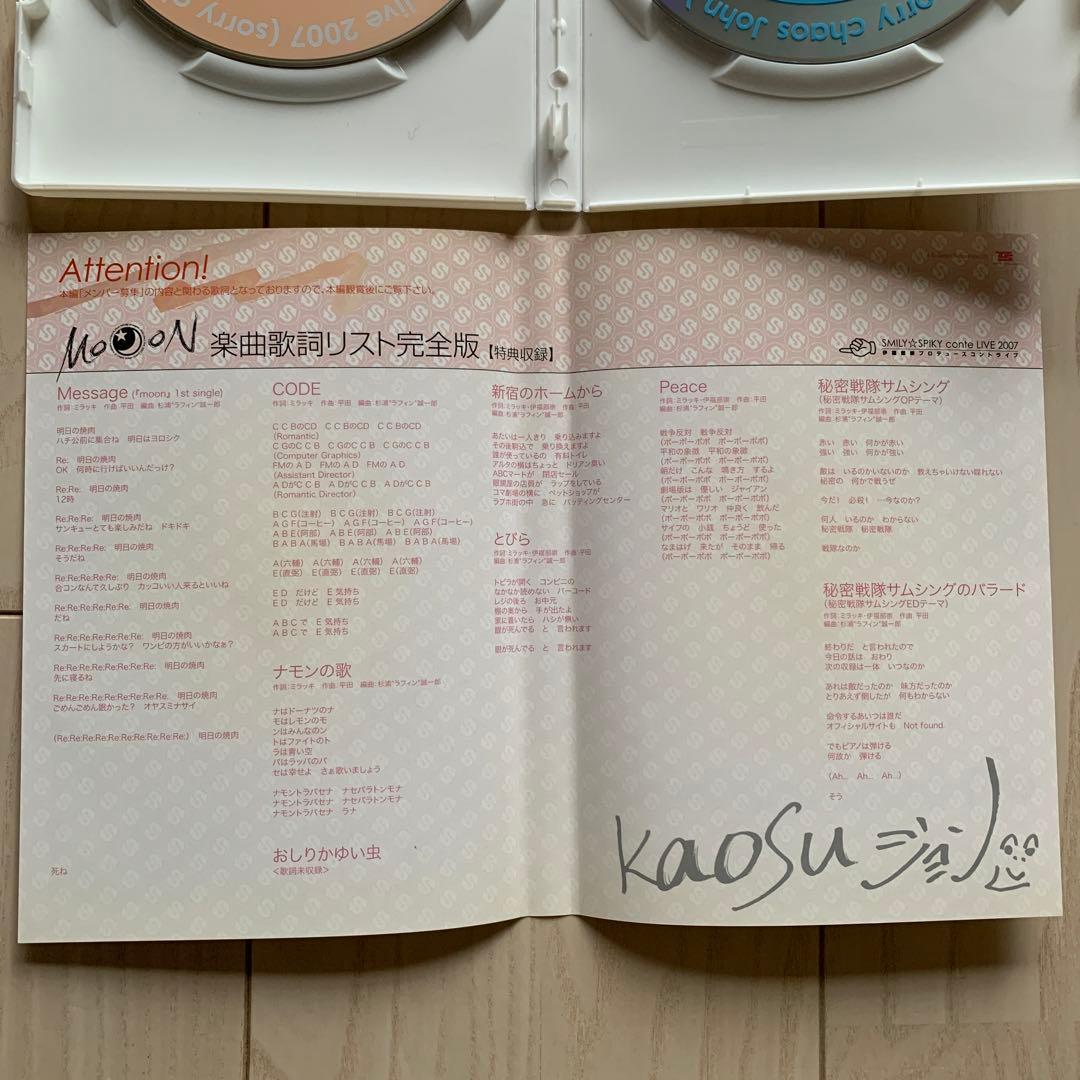 live 2007 (sorry c
orry chaos John
Attention!
本編「メンバー募集」の内容と関わる歌詞となっておりますので、本編観賞後にご覧下さい。
MOOON 楽曲歌詞リスト完全版【特典収録】
SMILY☆SPIKY conte LIVE 2007
伊福部崇プロデュースコントライブ
Message (『moon』 1st single)
作詞:ミラッキ 作曲:平田 編曲:杉浦"ラフィン"誠一郎
明日の焼肉
ハチ公前に集合ね 明日はヨロシク
Re: 明日の焼肉
OK 何時に行けばいいんだっけ?
Re:Re: 明日の焼肉
12時
Re:Re:Re: 明日の焼肉
サンキューとても楽しみだね ドキドキ
Re:Re:Re:Re: 明日の焼肉
そうだね
Re:Re:Re:Re:Re: 明日の焼肉
合コンなんて久しぶり カッコいい人来るといいね
Re:Re:Re:Re:Re:Re: 明日の焼肉
だね
Re:Re:Re:Re:Re:Re:Re: 明日の焼肉
スカートにしようかな? ワンピの方がいいかなぁ?
Re:Re:Re:Re:Re:Re:Re:Re: 明日の焼肉
先に寝るね
Re:Re:Re:Re:Re:Re:Re:Re:Re: 明日の焼肉
ごめんごめん眠かった? オヤスミナサイ
(Re:Re:Re:Re:Re:Re:Re:Re:Re:Re:) 明日の焼肉
死ね
CODE
作詞:ミラッキ 作曲:平田 編曲:杉浦"ラフィン"誠一郎
C C BのCD C C BのCD C C BのCD
(Romantic)
C GのC C B C GのC C B C GのC C B
(Computer Graphics)
FMのA D FMのA D FMのA D
(Assistant Director)
A DがC C B A DがC C B A DがC C B
(Romantic Director)
B C G(注射) B C G(注射) B C G(注射)
A G F(コーヒー) A G F(コーヒー) A G F(コーヒー)
A B E(阿部) A B E(阿部) A B E(阿部)
B A B A(馬場) B A B A(馬場) B A B A(馬場)
A(六輔) A(六輔) A(六輔) A(六輔)
E(直弼) E(直弼) E(直弼) E(直弼)
E D だけど E 気持ち
E D だけど E 気持ち
A B C で E 気持ち
A B C で E 気持ち
ナモンの歌
作詞:ミラッキ 作曲:平田 編曲:杉浦"ラフィン"誠一郎
ナはドーナツのナ
モはレモンのモ
ンはみんなのン
トはファイトのト
ラは青い空
パはラッパのパ
セは幸せよ さぁ歌いましょう
ナモントラパセナ ナセパラトンモナ
ナモントラパセナ ナセパラトンモナ
ナモントラパセナ ラナ
おしりかゆい虫
<歌詞未収録>
新宿のホームから
作詞:ミラッキ・伊福部崇 作曲:平田
編曲:杉浦"ラフィン"誠一郎
あたいは一人きり 乗り込みますよ
その後駒込で 乗り換えますよ
誰が使っているの 有料トイレ
アルタの横はちょっと ドリアン臭い
ABCマートが 閉店セール
眼鏡屋の店員が ラップをしている
コマ劇場の横に ペットショップが
ラブホ街の中 急に バッティングセンター
とびら
作詞:ミラッキ・伊福部崇 作曲:平田
編曲:杉浦"ラフィン"誠一郎
トビラが開く コンビニの
なかなか読めない バーコード
レジの後ろ お中元
棚の裏から 手が出たよ
家に着いたら ハシが無い
眼が死んでる と 言われます
眼が死んでる と 言われます
Peace
作詞:ミラッキ・伊福部崇 作曲:平田
編曲:杉浦"ラフィン"誠一郎
戦争反対 戦争反対
(ポーポーポポ ポーポーポポ)
平和の象徴 平和の象徴
(ポーポーポポ ポーポーポポ)
朝だけ こんな 鳴き方 するよ
(ポーポーポポ ポーポーポポ)
劇場版は 優しい ジャイアン
(ポーポーポポ ポーポーポポ)
マリオと ワリオ 仲良く 飲んだ
(ポーポーポポ ポーポーポポ)
サイフの 小銭 ちょうど 使った
(ポーポーポポ ポーポーポポ)
なまはげ 来たが そのまま 帰る
(ポーポーポポ ポーポーポポ)
秘密戦隊サムシング
(秘密戦隊サムシングOPテーマ)
作詞:ミラッキ・伊福部崇 作曲:平田
編曲:杉浦"ラフィン"誠一郎
赤い 赤い 何かが赤い
強い 強い 何かが強い
敵は いるのかいないのか 教えちゃいけない喋れない
秘密の 何かで戦うぜ
今だ! 必殺! …今なのか?
何人 いるのか わからない
秘密戦隊 秘密戦隊
戦隊なのか
秘密戦隊サムシングのバラード
(秘密戦隊サムシングEDテーマ)
作詞:ミラッキ・伊福部崇 作曲:平田
編曲:杉浦"ラフィン"誠一郎
終わりだ と言われたので
今日の話は おわり
次の収録は一体 いつなのか
あれは敵だったのか 味方だったのか
とりあえず倒したが 何もわからない
命令するあいつは誰だ
オフィシャルサイトも Not found
でもピアノは弾ける
何故か 弾ける
(Ah... Ah... Ah...)
そう
kaosu ジョン